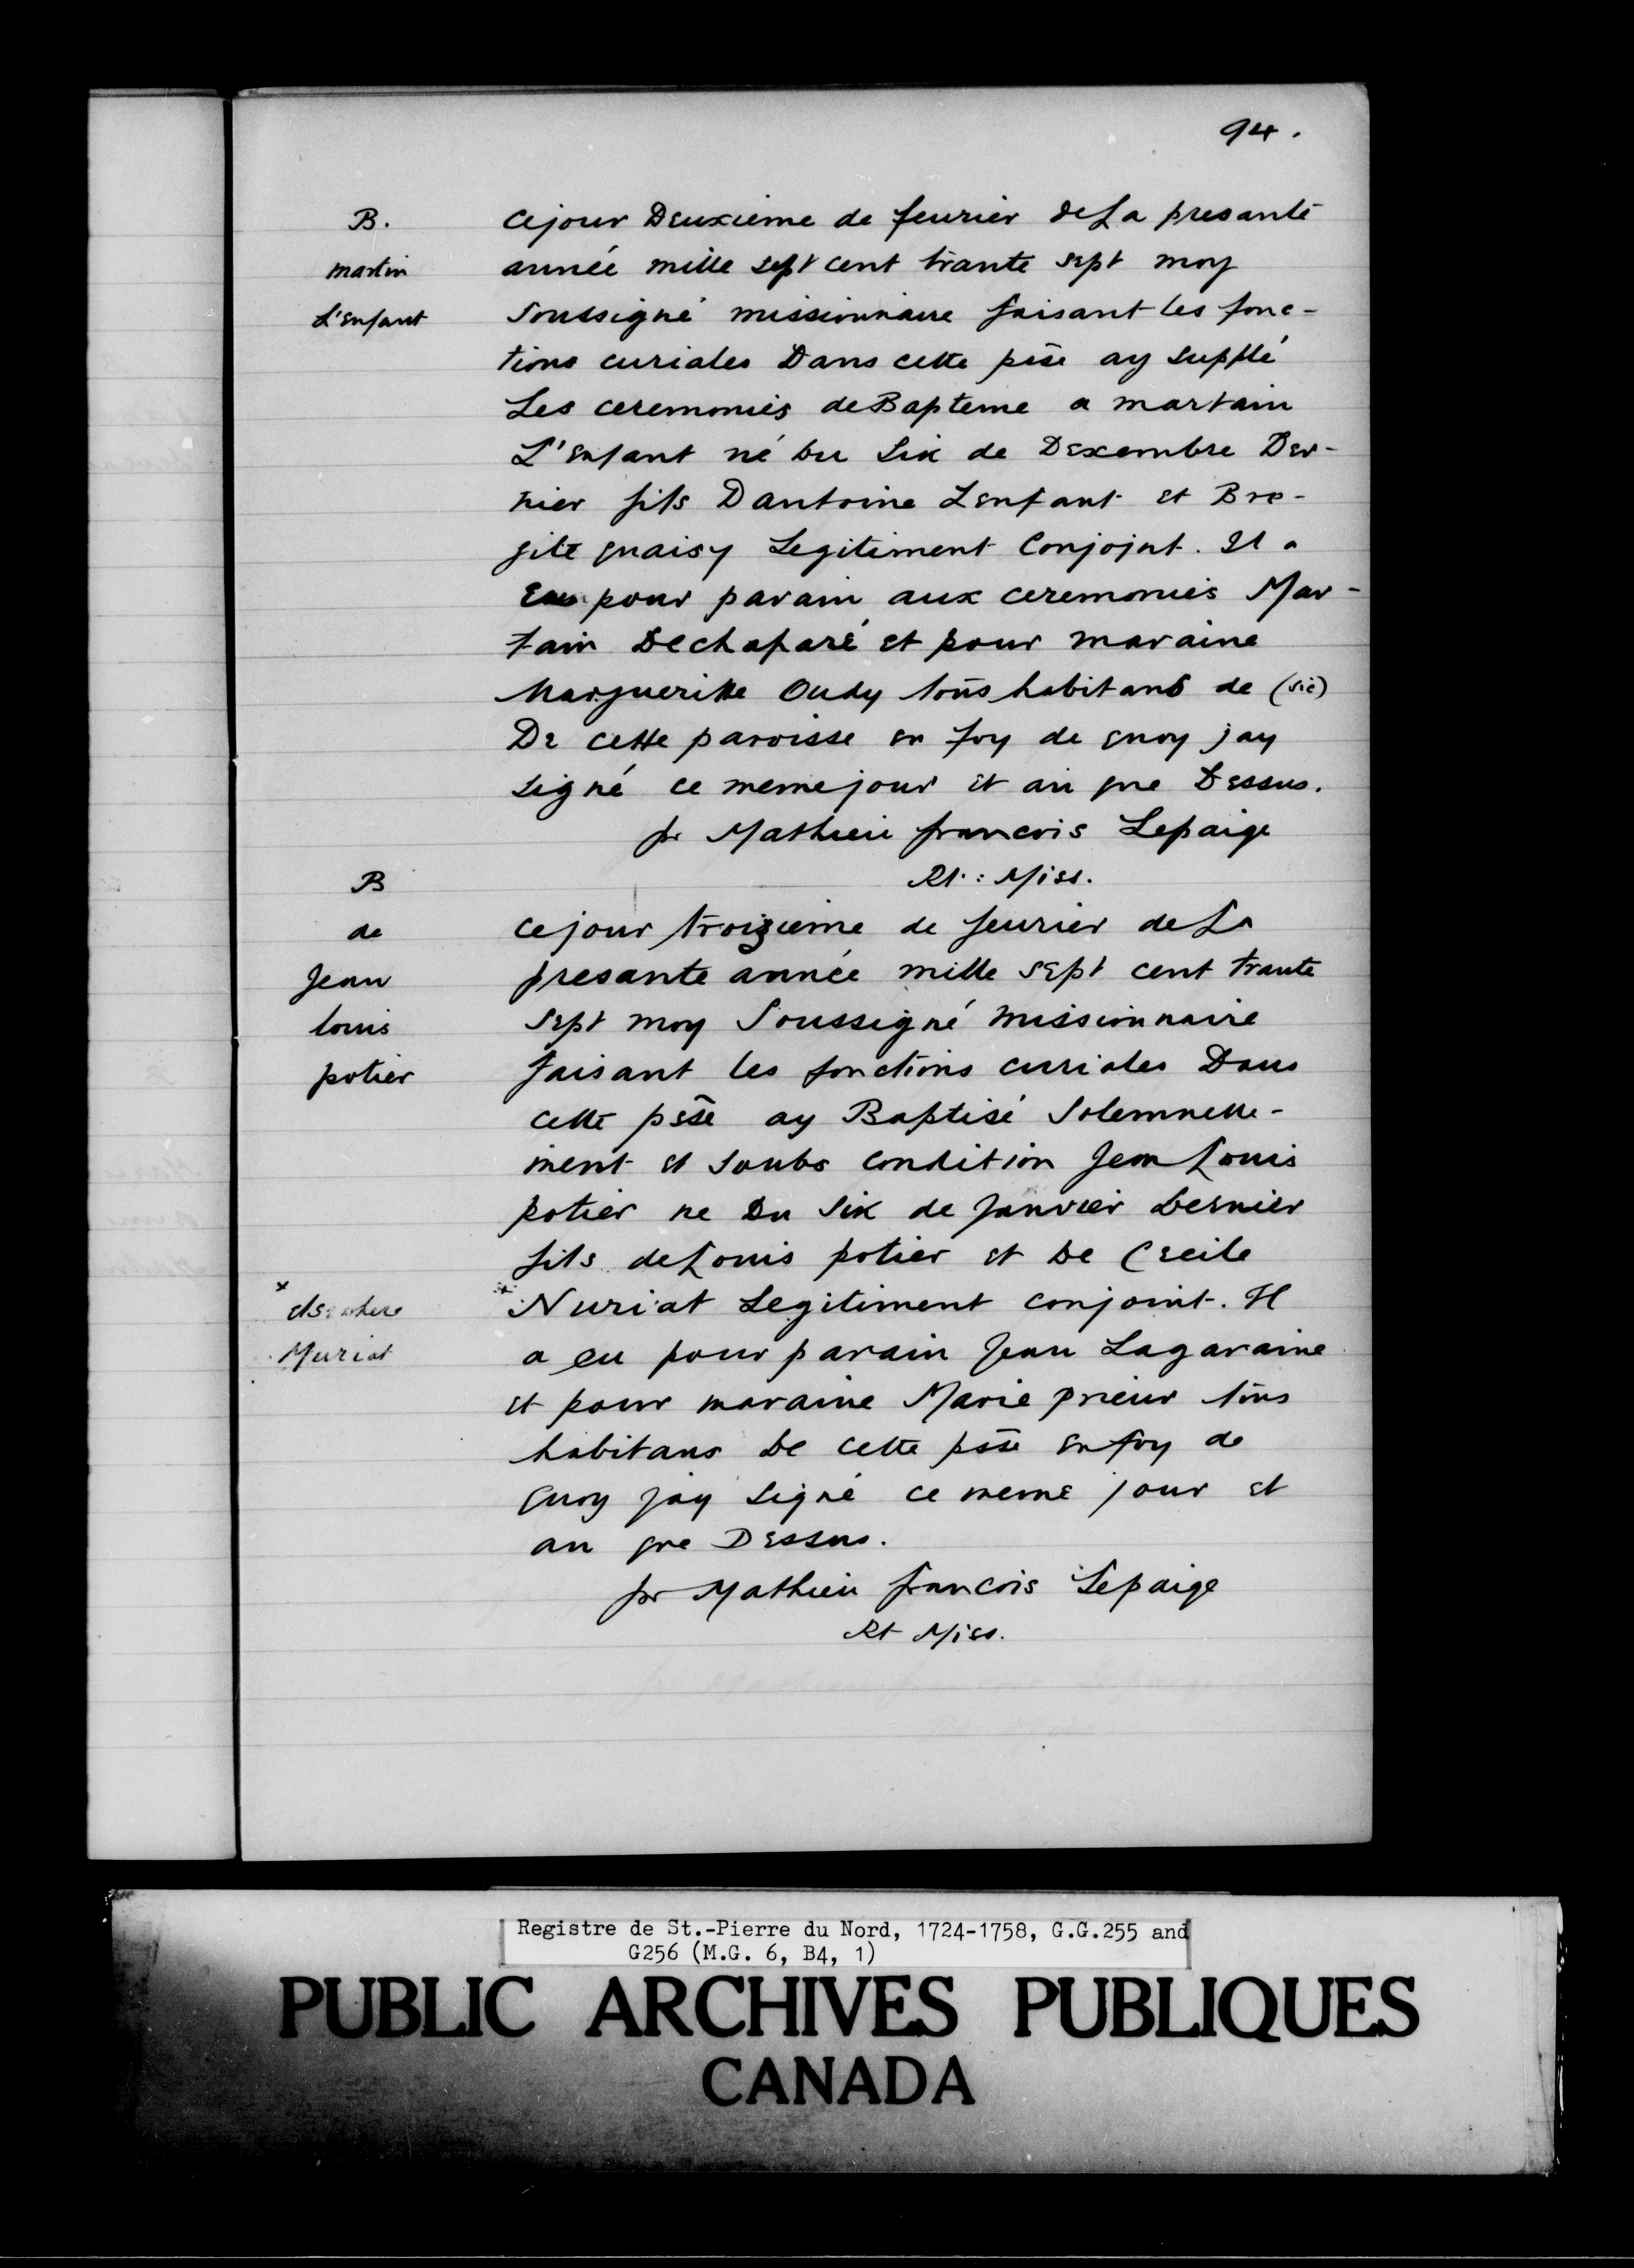 94.
B.
martin
L'enfant
Cejour Deuxieme de feurier deLa presante
année mille sept cent trante sept moy
Soussigné missionnaire faisant les fonc-
tions curiales Dans cette psse ay supplé
Les ceremonies de Bapteme a martain
L'enfant né du six de Dexembre Der-
nier fils Dantoine Lenfant et Bre-
gite guaisy Legitiment Conjoint. Il a
Eu pour parain aux ceremonies Mar-
tain Dechaparé et pour maraine
Margueritte Oudy tous habitans de (sic)
De cette paroisse en foy de quoy jay
signé ce memejour et an que Dessus.
fr Mathieu francois Lepaige
Rt: Miss.
B
de
Jean
louis
potier
Cejour troizieme de feurier deLa
presante année mille sept cent trante
sept moy Soussigné missionnaire
faisant les fonctions curiales Dans
cette psse ay Baptisé Solemnelle-
ment et soubs condition Jean Louis
potier ne Du six de Janvier Dernier
fils deLouis potier et De Cecile
x Nuriat Legitiment conjoint. Il
x
elsewhere
Muriat
a eu pour parain Jean Lagaraine
et pour maraine Marie prieur tous
habitans De cette psse en foy de
quoy jay signé ce meme jour et
an que Dessus.
fr Mathieu francois Lepaige
Rt Miss.
Registre de St.-Pierre du Nord, 1724-1758, G.G.255 and
G256 (M.G. 6, B4, 1)
PUBLIC ARCHIVES PUBLIQUES
CANADA